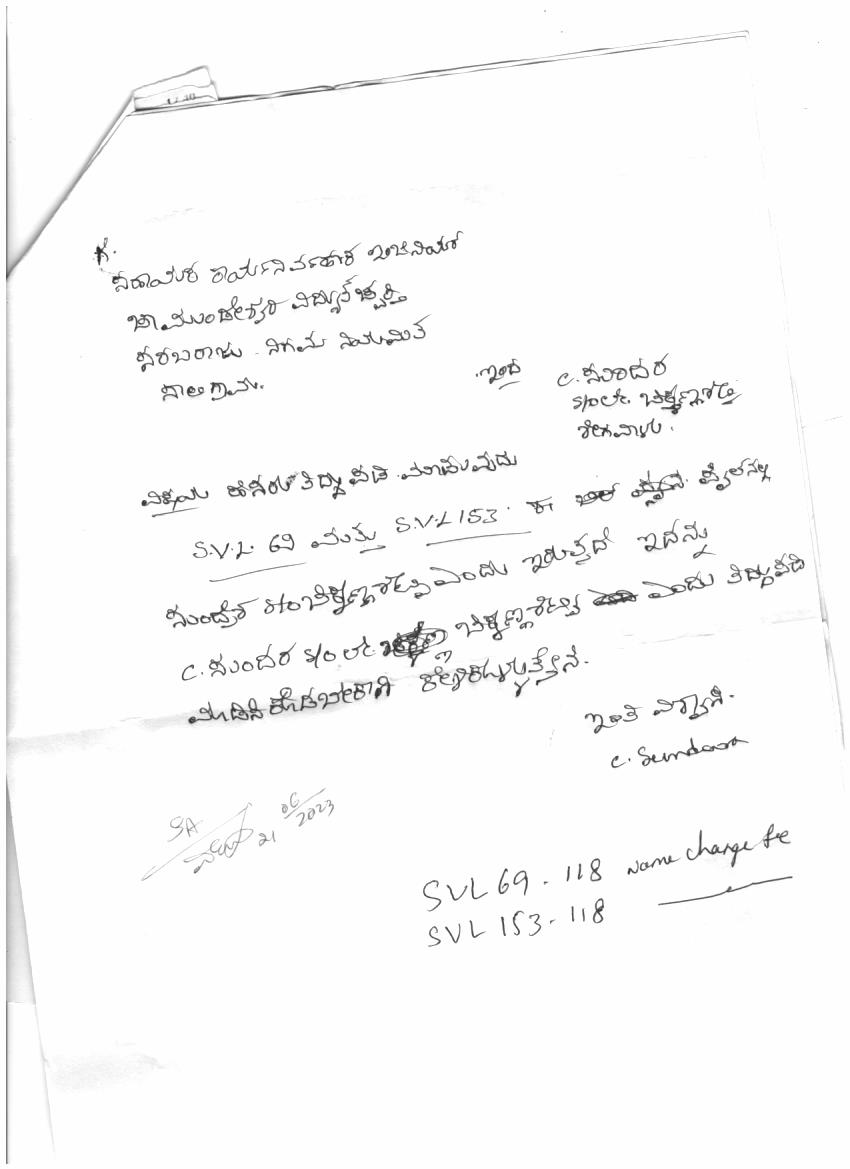 ಗೆ.
ಸಹಾಯಕ ಕಾರ್ಯನಿರ್ವಾಹಕ ಇಂಜಿನಿಯರ್
ಚಾಮುಂಡೇಶ್ವರಿ ವಿದ್ಯುಚ್ಛಕ್ತಿ
ಸರಬರಾಜು ನಿಗಮ ನಿಯಮಿತ
ಸಾಲಿಗ್ರಾಮ.
ಇಂದ
C. ಸುಂದರ
S/o ಲೇ. ಚಿಕ್ಕಣ್ಣಶೆಟ್ಟಿ
ವಿಷಯ ಹೆಸರು ತಿದ್ದುಪಡಿ ಮಾಡುವುದು
S.V.L. 69 ಮತ್ತು S.V.L 153. ಈ
C. ಸುಂದರ S/o ಲೇ. ಚಿಕ್ಕಣ್ಣಶೆಟ್ಟಿ ಎಂದು ತಿದ್ದುಪಡಿ
ಮಾಡಿಸಿ ಕೊಡಬೇಕಾಗಿ ಕೇಳಿಕೊಳ್ಳುತ್ತೇನೆ.
ಇಂತಿ ವಿಶ್ವಾಸಿ.
C. Sundara
SA
21/06/2023
SVL 69 - 118 Name change fee
SVL 153 - 118